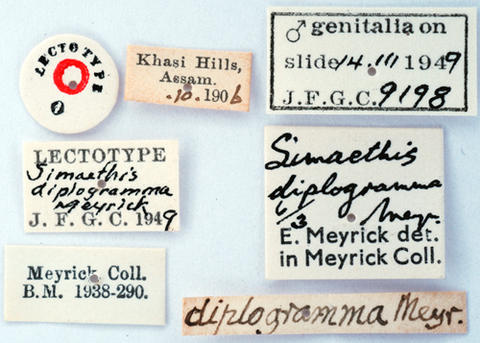 LECTOTYPE
Khasi Hills,
Assam.
.10.1906
♂ genitalia on
slide 14.III 1949
J.F.G.C. 9198
LECTOTYPE
Simaethis
diplogramma
Meyrick
J. F. G. C. 1949
Simaethis
diplogramma
1/3 Meyr.
E. Meyrick det.
in Meyrick Coll.
Meyrick Coll.
B.M. 1938-290.
diplogramma Meyr.